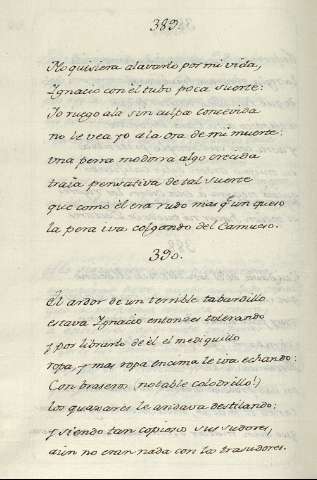 389.
No quisiera alavarlo por mi vida,
Ygnacio con èl tubo poca suerte:
Io ruego ala sin culpa concevida
no le vea yo ala òra de mi muerte:
una perra modorra algo crecida
traìa pensativa de tal suerte
que como èl era rudo mas q.e un queso
la pera iva colgando del Camueso.
390.
Èl ardor de un terrible tabardillo
estava Ygnacio entonzes tolerando
y por librarlo de èl el mediquillo
ropa, y mas ropa encima le iva echando:
Con braseros (notable colodrillo!)
los guazares le andava destilando:
y siendo tan copiosos sus sudores,
aùn no eran nada con los trasudores.